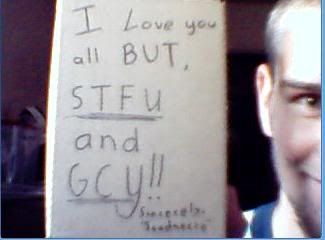 I Love you
all BUT,
STFU
and
GCY!!
Sincerely,